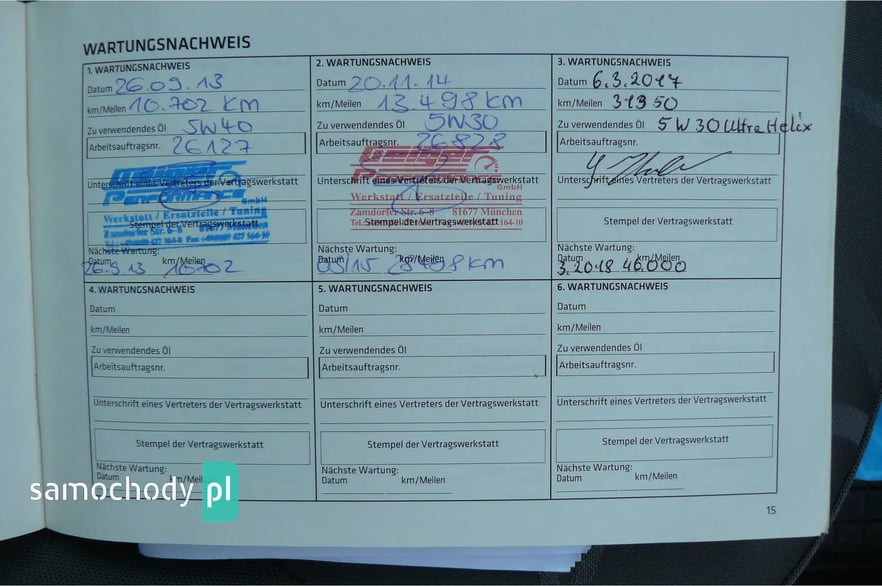 WARTUNGSNACHWEIS
1. WARTUNGSNACHWEIS
Datum 26.09.13
km/Meilen 10.702 KM
Zu verwendendes Öl 5W40
Arbeitsauftragsnr. 26127
Unterschrift eines Vertreters der Vertragswerkstatt
Geiger
Performance
GmbH
Werkstatt / Ersatzteile / Tuning
Stempel der Vertragswerkstatt
Zamdorfer Str. 6-8 81677 München
Nächste Wartung:
Datum km/Meilen
26.9.13 10702
2. WARTUNGSNACHWEIS
Datum 20.11.14
km/Meilen 13.498 km
Zu verwendendes Öl 5W30
Arbeitsauftragsnr. 26828
Geiger
Unterschrift eines Vertreters der Vertragswerkstatt
Performance
GmbH
Werkstatt / Ersatzteile / Tuning
Zamdorfer Str. 6-8 81677 München
Stempel der Vertragswerkstatt
Nächste Wartung:
Datum km/Meilen
km
3. WARTUNGSNACHWEIS
Datum 6.3.2017
km/Meilen 31350
Zu verwendendes Öl 5W30 Ultra Helix
Arbeitsauftragsnr.
Unterschrift eines Vertreters der Vertragswerkstatt
Stempel der Vertragswerkstatt
Nächste Wartung:
Datum km/Meilen
3.2018 46.000
4. WARTUNGSNACHWEIS
Datum
km/Meilen
Zu verwendendes Öl
Arbeitsauftragsnr.
Unterschrift eines Vertreters der Vertragswerkstatt
Stempel der Vertragswerkstatt
Nächste Wartung:
Datum km/Meilen
5. WARTUNGSNACHWEIS
Datum
km/Meilen
Zu verwendendes Öl
Arbeitsauftragsnr.
Unterschrift eines Vertreters der Vertragswerkstatt
Stempel der Vertragswerkstatt
Nächste Wartung:
Datum km/Meilen
6. WARTUNGSNACHWEIS
Datum
km/Meilen
Zu verwendendes Öl
Arbeitsauftragsnr.
Unterschrift eines Vertreters der Vertragswerkstatt
Stempel der Vertragswerkstatt
Nächste Wartung:
Datum km/Meilen
15
samochody pl